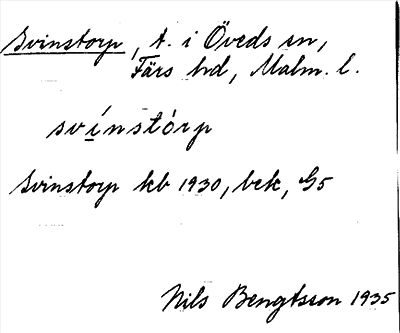 Svinstorp, t. i Öveds sn,
Färs hd, Malm. l.
svínstòrp
Svinstorp kb 1930, bek, G5
Nils Bengtsson 1935